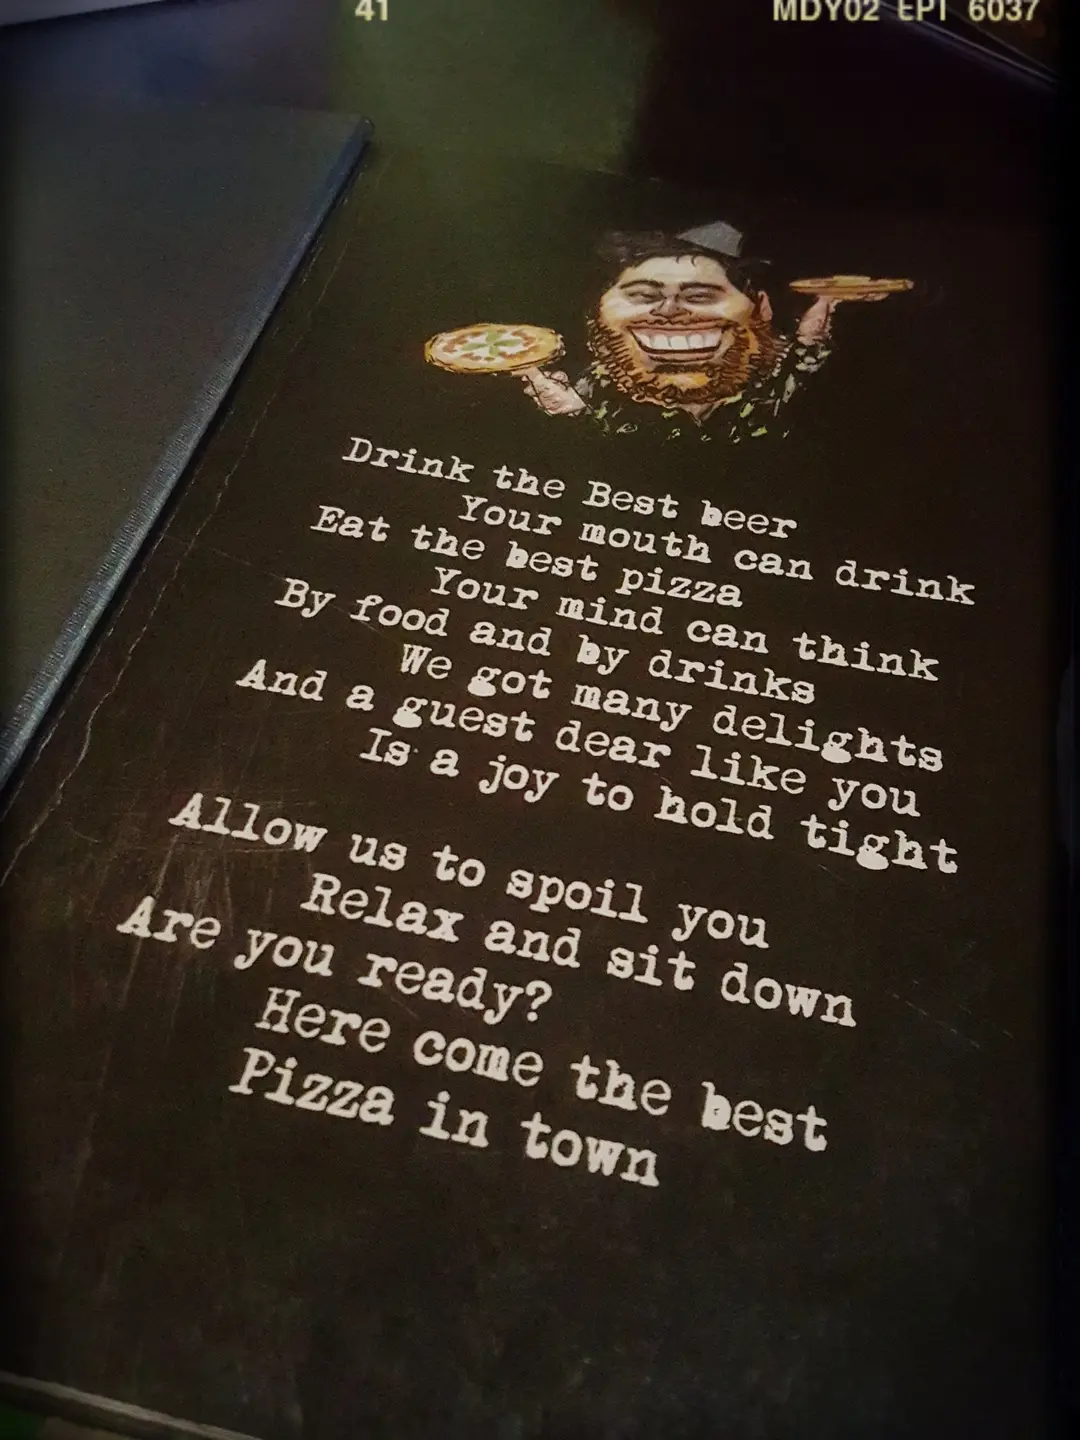 41 MDY02 EPI 6037
Drink the Best beer
Your mouth can drink
Eat the best pizza
Your mind can think
By food and by drinks
We got many delights
And a guest dear like you
Is a joy to hold tight
Allow us to spoil you
Relax and sit down
Are you ready?
Here come the best
Pizza in town